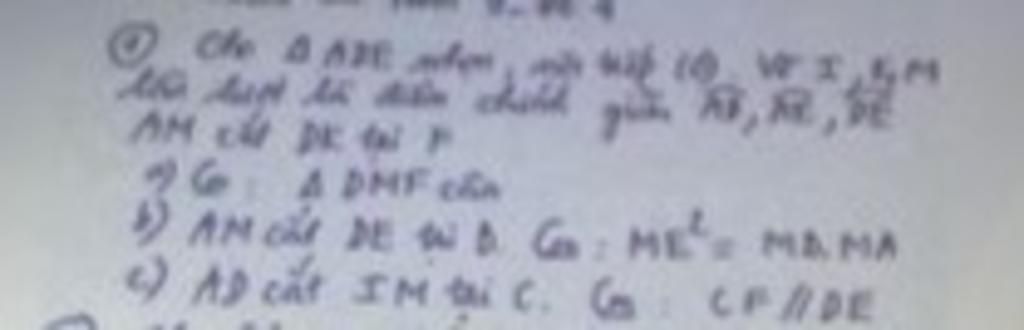 ① Cho Δ ADE nhọn, nội tiếp (O). Vẽ I, K, M
lần lượt là điểm chính giữa AD, AE, DE
AM cắt DK tại F
a) Cm : Δ DMF cân
b) AM cắt DE tại B. Cm : ME² = MB. MA
c) AD cắt IM tại C. Cm : CF // DE